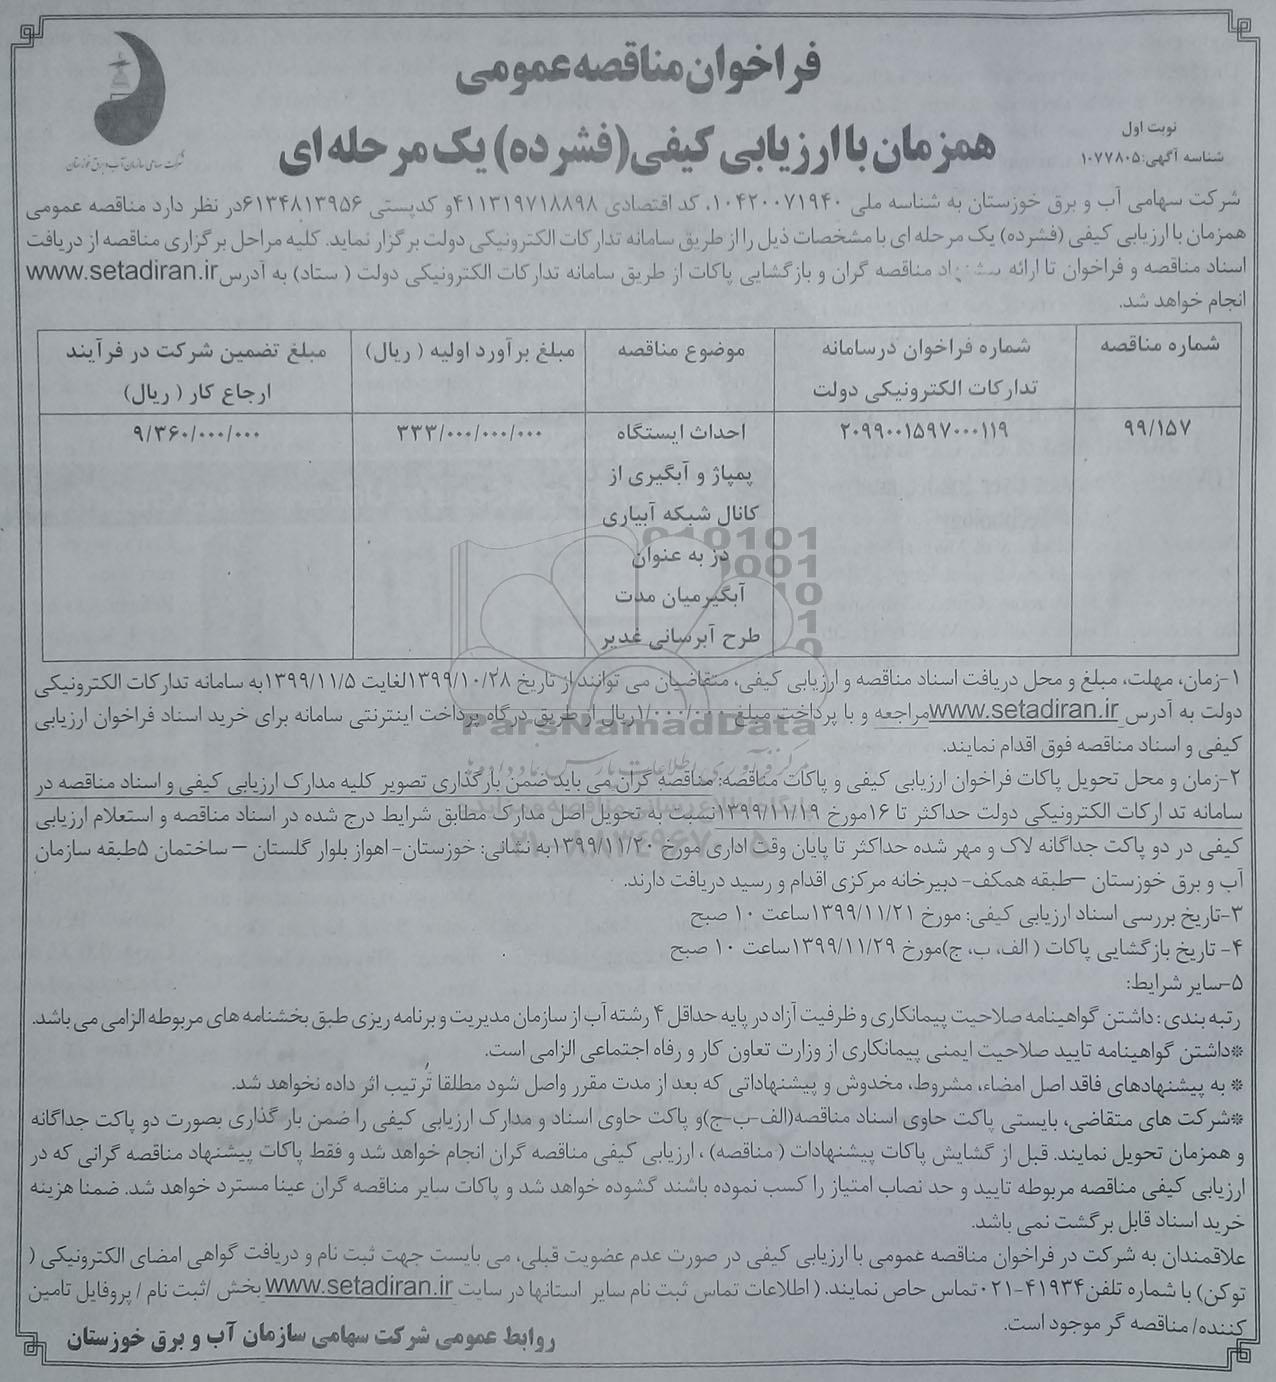 فراخوان مناقصه عمومی
همزمان با ارزیابی کیفی (فشرده) یک مرحله ای
نوبت اول
شناسه آگهی: ۱۰۷۷۸۰۵
شرکت سهامی سازمان آب و برق خوزستان
شرکت سهامی آب و برق خوزستان به شناسه ملی ۱۰۴۲۰۰۷۱۹۴۰، کد اقتصادی ۴۱۱۳۱۹۷۱۸۸۹۸و کدپستی ۶۱۳۴۸۱۳۹۵۶در نظر دارد مناقصه عمومی
همزمان با ارزیابی کیفی (فشرده) یک مرحله ای با مشخصات ذیل را از طریق سامانه تدارکات الکترونیکی دولت برگزار نماید. کلیه مراحل برگزاری مناقصه از دریافت
اسناد مناقصه و فراخوان تا ارائه پیشنهاد مناقصه گران و بازگشایی پاکات از طریق سامانه تدارکات الکترونیکی دولت ( ستاد) به آدرس www.setadiran.ir
انجام خواهد شد.
شماره مناقصه | شماره فراخوان درسامانه تدارکات الکترونیکی دولت | موضوع مناقصه | مبلغ برآورد اولیه ( ریال) | مبلغ تضمین شرکت در فرآیند ارجاع کار ( ریال)
۹۹/۱۵۷ | ۲۰۹۹۰۰۱۵۹۷۰۰۰۱۱۹ | احداث ایستگاه | ۳۳۳/۰۰۰/۰۰۰/۰۰۰ | ۹/۳۶۰/۰۰۰/۰۰۰
پمپاژ و آبگیری از
کانال شبکه آبیاری
دز به عنوان
آبگیرمیان مدت
طرح آبرسانی غدیر
۱-زمان، مهلت، مبلغ و محل دریافت اسناد مناقصه و ارزیابی کیفی، متقاضیان می توانند از تاریخ ۱۳۹۹/۱۰/۲۸لغایت ۱۳۹۹/۱۱/۵به سامانه تدارکات الکترونیکی
دولت به آدرس www.setadiran.ir مراجعه و با پرداخت مبلغ ۱/۰۰۰/۰۰۰ریال از طریق درگاه پرداخت اینترنتی سامانه برای خرید اسناد فراخوان ارزیابی
کیفی و اسناد مناقصه فوق اقدام نمایند.
۲-زمان و محل تحویل پاکات فراخوان ارزیابی کیفی و پاکات مناقصه: مناقصه گران می باید ضمن بارگذاری تصویر کلیه مدارک ارزیابی کیفی و اسناد مناقصه در
سامانه تدارکات الکترونیکی دولت حداکثر تا ۱۶مورخ ۱۳۹۹/۱۱/۱۹نسبت به تحویل اصل مدارک مطابق شرایط درج شده در اسناد مناقصه و استعلام ارزیابی
کیفی در دو پاکت جداگانه لاک و مهر شده حداکثر تا پایان وقت اداری مورخ ۱۳۹۹/۱۱/۲۰به نشانی: خوزستان- اهواز بلوار گلستان – ساختمان ۵طبقه سازمان
آب و برق خوزستان –طبقه همکف- دبیرخانه مرکزی اقدام و رسید دریافت دارند.
۳-تاریخ بررسی اسناد ارزیابی کیفی: مورخ ۱۳۹۹/۱۱/۲۱ساعت ۱۰ صبح
۴- تاریخ بازگشایی پاکات ( الف، ب، ج)مورخ ۱۳۹۹/۱۱/۲۹ساعت ۱۰ صبح
۵-سایر شرایط:
رتبه بندی : داشتن گواهینامه صلاحیت پیمانکاری و ظرفیت آزاد در پایه حداقل ۴ رشته آب از سازمان مدیریت و برنامه ریزی طبق بخشنامه های مربوطه الزامی می باشد.
*داشتن گواهینامه تایید صلاحیت ایمنی پیمانکاری از وزارت تعاون کار و رفاه اجتماعی الزامی است.
* به پیشنهادهای فاقد اصل امضاء، مشروط، مخدوش و پیشنهاداتی که بعد از مدت مقرر واصل شود مطلقا ترتیب اثر داده نخواهد شد.
*شرکت های متقاضی، بایستی پاکت حاوی اسناد مناقصه(الف-ب-ج)و پاکت حاوی اسناد و مدارک ارزیابی کیفی را ضمن بار گذاری بصورت دو پاکت جداگانه
و همزمان تحویل نمایند. قبل از گشایش پاکات پیشنهادات ( مناقصه) ، ارزیابی کیفی مناقصه گران انجام خواهد شد و فقط پاکات پیشنهاد مناقصه گرانی که در
ارزیابی کیفی مناقصه مربوطه تایید و حد نصاب امتیاز را کسب نموده باشند گشوده خواهد شد و پاکات سایر مناقصه گران عینا مسترد خواهد شد. ضمنا هزینه
خرید اسناد قابل برگشت نمی باشد.
علاقمندان به شرکت در فراخوان مناقصه عمومی با ارزیابی کیفی در صورت عدم عضویت قبلی، می بایست جهت ثبت نام و دریافت گواهی امضای الکترونیکی (
توکن) با شماره تلفن۴۱۹۳۴-۰۲۱تماس حاص نمایند. ( اطلاعات تماس ثبت نام سایر استانها در سایت www.setadiran.ir بخش /ثبت نام / پروفایل تامین
کننده/ مناقصه گر موجود است.
روابط عمومی شرکت سهامی سازمان آب و برق خوزستان
ParsNamadData